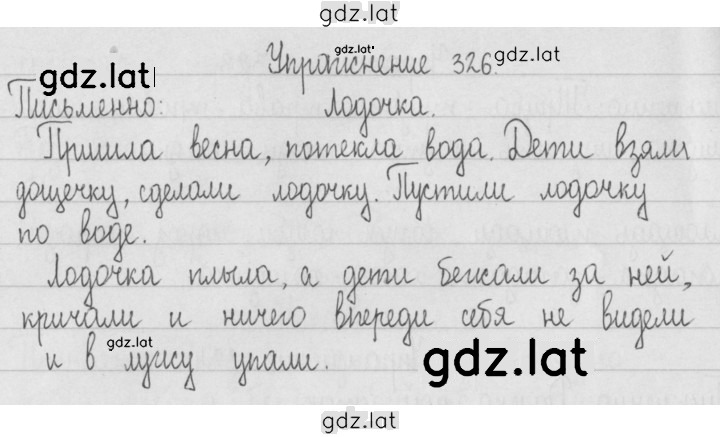 gdz.lat
Упражнение 326.
gdz.lat
gdz.lat
gdz.lat
Письменно: Лодочка.
Пришла весна, потекла вода. Дети взяли
дощечку, сделали лодочку. Пустили лодочку
по воде.
Лодочка плыла, а дети бежали за ней,
кричали и ничего впереди себя не видели
и в лужу упали.
gdz.lat
gdz.lat
gdz.lat